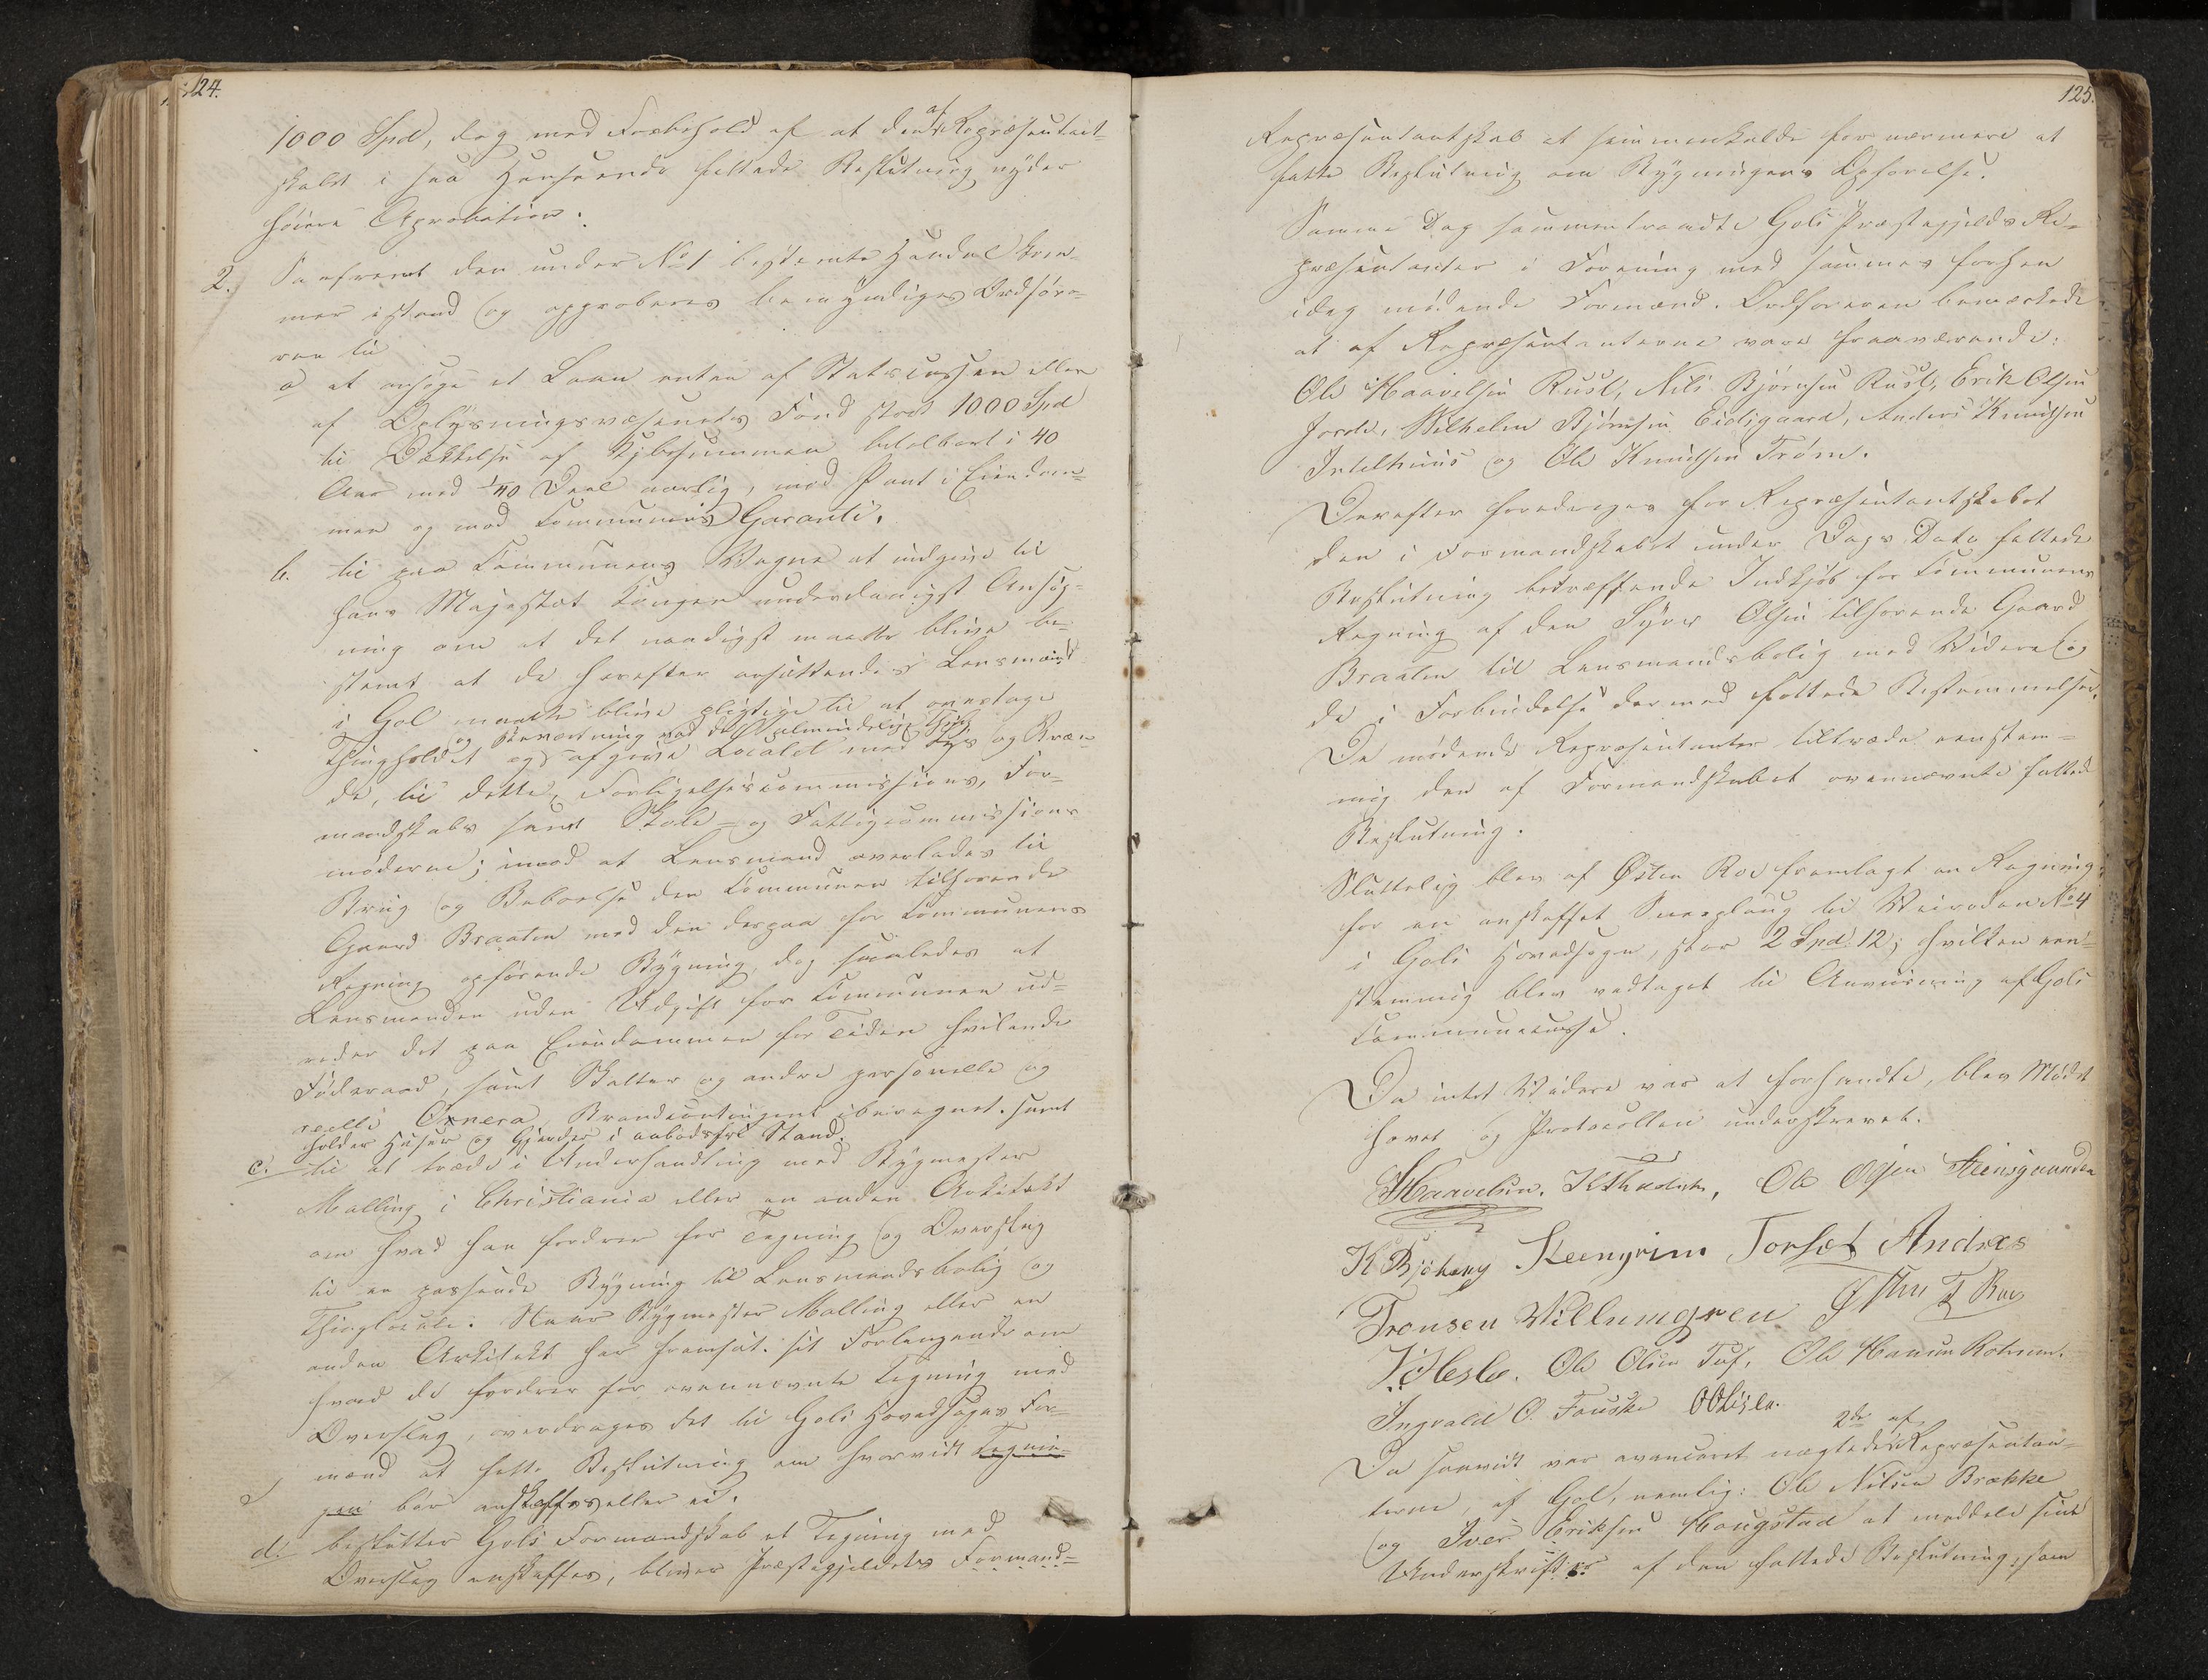 124.
1000 Spd, dog med Forbehold af at den af Repræsentant-
skabet i saa Henseende fattede Beslutning nyder
høiere Aprobation.
2. Saafremt den under No 1 bestemte Handel kom-
mer istand og approberes bemyndiges Ordføre-
ren til
a at ansøge et Laan enten af Statscassen eller
af Oplysningsvæsenets Fond stort 1000 Spd
til Dækkelse af Kjøbesummen betalbart i 40
Aar med 1/40 Deel aarlig, mod Pant i Eiendom-
men og mod Communens Garanti.
b. til paa Communens Vegne at indgive til
Hans Majestæt Kongen underdanigst Ansøg-
ning om at det naadigst maatte blive be-
stemt at de herefter ansættendes Lensmænd
i Gol maatte blive pligtige til at overtage
og Bevertning ved de almindelige Thing
Thingholdet og afgive Localet med Lys og Bræn-
de, til dette, Forligelsescommissions, For-
mandskabs samt Skole- og Fattigcommissions-
møderne; imod at Lensmand overlades til
Brug og Beboelse den Communen tilhørende
Gaard Braaten med den derpaa for Communens
Regning opførende Bygning, dog saaledes at
Lensmanden uden Udgift for Communen ud-
reder det paa Eiendommen for Tiden hvilende
Føderaad, samt Skatter og andre personelle og
reelle Onera, Brandcontingent iberegnet. samt
holder Huser og Gjerder i aabodsfri Stand.
c. til at træde i Underhandling med Bygmester
Malling i Christiania eller en anden Arkitekt
om hvad han fordrer for Tegning og Overslag
til en passende Bygning til Lensmandsbolig og
Thinglocale. Naar Bygmester Malling eller en
anden Arkitekt har fremsat sit Forlangende om
hvad de fordrer for ovennævnte Tegning med
Overslag, overdrages det til Gols Hovedsogns For-
mænd at fatte Beslutning om hvorvidt Tegnin-
gen bør anskaffes eller ei.
d. beslutter Gols Formandskab at Tegning med
Overslag anskaffes, bliver Præstegjeldets Formand-
125.
Repræsentantskab at sammenkalde for nærmere at
fatte Beslutning om Bygningens Opførelse.
Samme Dag sammentraadte Gols Præstegjelds Re-
præsentanter i Forening med sammes forhen
idag mødende Formænd. Ordføreren bemærkede
at af Repræsentanterne vare fraværende:
Ole Haavelsen Rust, Nils Bjørnsen Rust, Erik Olsen
Jorde, Wilhelm Bjørnsen Eidsgaard, Anders Knudsen
Intelhuus og Ole Knudsen Trøm.
Derefter foredroges for Repræsentantskabet
den i Formandskabet under Dags Dato fattede
Beslutning betræffende Indkjøb for Communens
Regning af den Syver Olsen tilhørende Gaard
Braaten til Lensmandsbolig med Videre og
de i Forbindelse dermed fattede Bestemmelser.
De mødende Repræsentanter tiltræde eenstem-
mig den af Formandskabet ovennævnte fattede
Beslutning.
Sluttelig blev af Østen Roe fremlagt en Regning
for en anskaffet Sneeploug til Veiroden No 4
i Gols Hovedsogn, stor 2 Spd 12; hvilken een-
stemmig blev vedtaget til Anviisning af Gols
Communecasse.
Da intet Videre var at forhandle, blev Mødet
hævet og Protocollen underskrevet.
Haavelsen. Ole Olsen Steensgaarden
Steengrim Torset Andres
Tronsen Villumgren Østen T Roe
Hesle. Ole Olsen Tuf, Ole Hansen
Ingvald O. Fauske
Da saavidt var avanceret nægtede 2de af Repræsentan-
terne, af Gol, nemlig: Ole Nilsen Brække
og Iver Eriksen Haugstad at meddele sine
Underskrifter af den fattede Beslutning, som